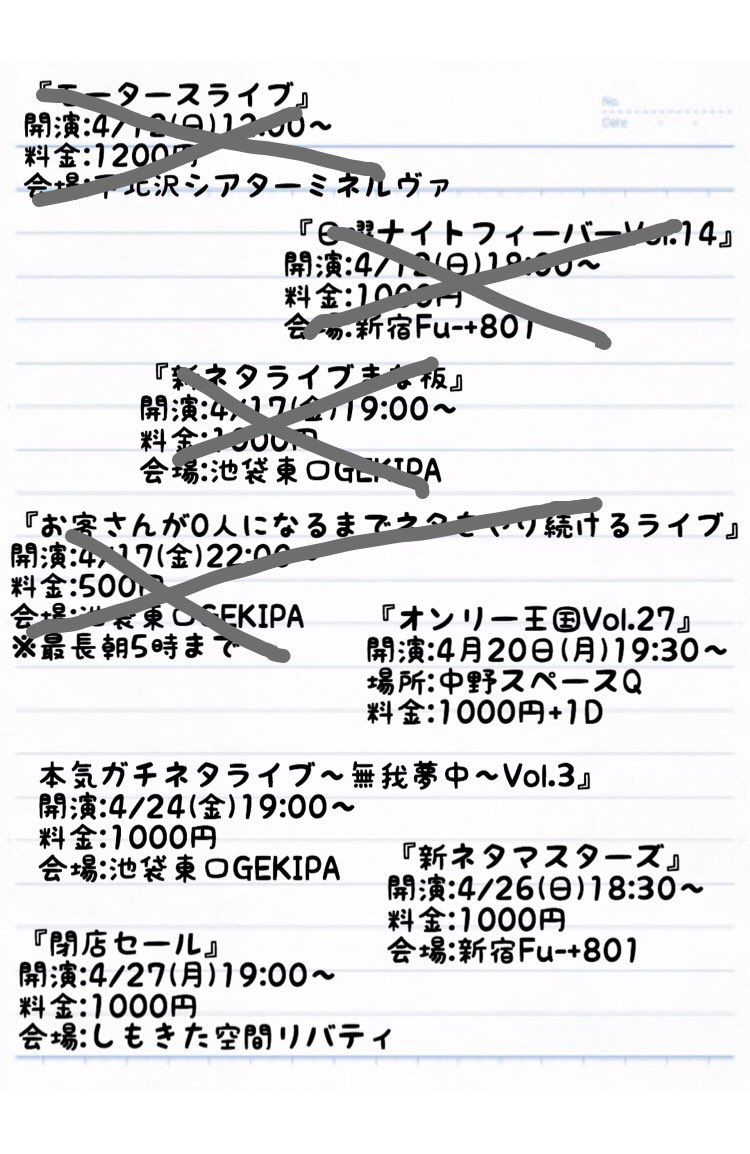 No.
Date
『モータースライブ』
開演:4/12(日)12:00～
料金:1200円
会場:下北沢シアターミネルヴァ
『日曜ナイトフィーバーVol.14』
開演:4/12(日)18:00～
料金:1000円
会場:新宿Fu-+801
『新ネタライブまな板』
開演:4/17(金)19:00～
料金:1000円
会場:池袋東口GEKIPA
『お客さんが0人になるまでネタをやり続けるライブ』
開演:4/17(金)22:00～
料金:500円
会場:池袋東口GEKIPA
※最長朝5時まで
『オンリー王国Vol.27』
開演:4月20日(月)19:30～
場所:中野スペースQ
料金:1000円+1D
本気ガチネタライブ～無我夢中～Vol.3』
開演:4/24(金)19:00～
料金:1000円
会場:池袋東口GEKIPA
『新ネタマスターズ』
開演:4/26(日)18:30～
料金:1000円
会場:新宿Fu-+801
『閉店セール』
開演:4/27(月)19:00～
料金:1000円
会場:しもきた空間リバティ